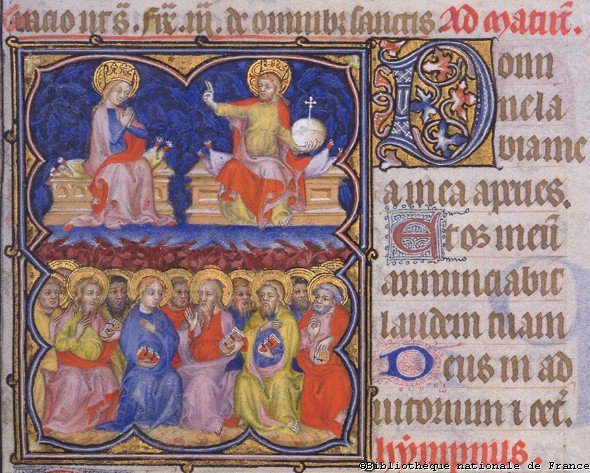 ncio ur̄s. Fix̄. iij. de omnibꝫ sanctis Ad Matut̄.
Domi
ne la
bia me
a mea apries.
Et os meū
annunciabit
laudem tuam
Deus in ad
iutorium ⁊ cet̄.
hympnus.
©Bibliothèque nationale de France